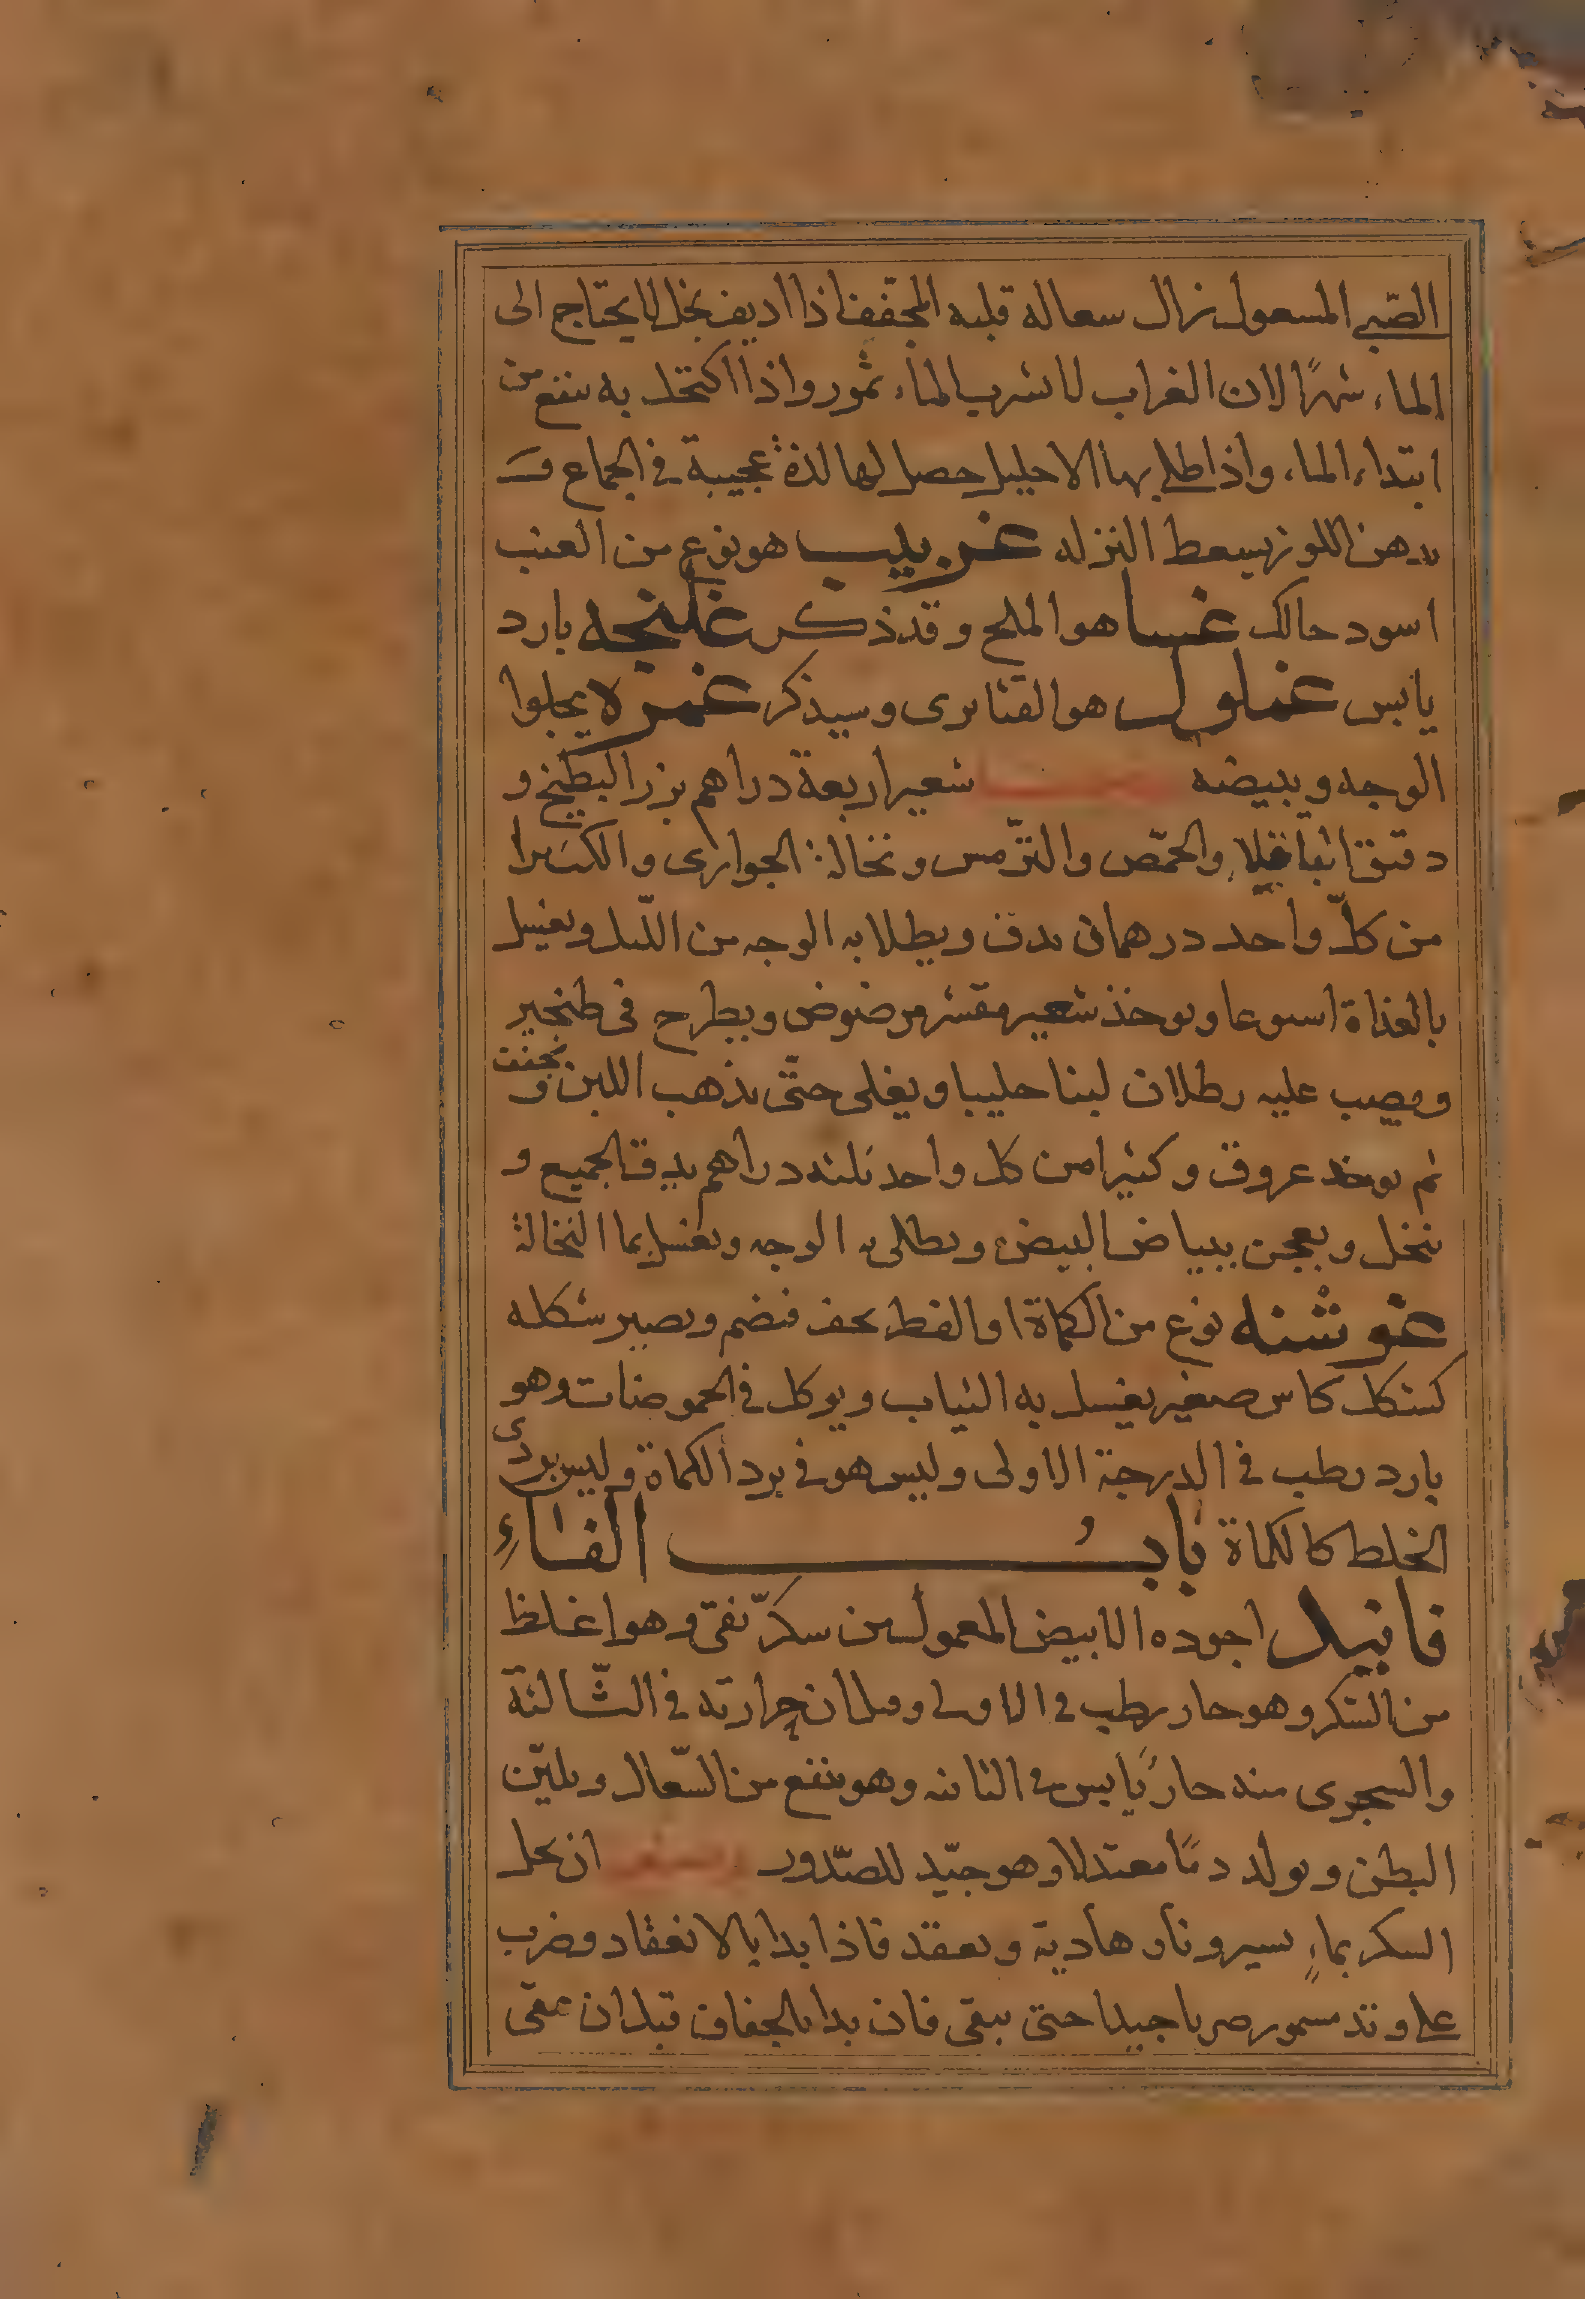 الصبي المسعول نزال سعاله قلبه المجفف اذا اديف بخل لا يحتاج الى
الماء شهرًا لان الغراب لا يشرب الماء تموز واذا اكتحل به ينفع من
ابتداء الماء واذا طلي بها الاحليل حصل لها لذة عجيبة في الجماع
بدهن اللوز يسعط النزله غربيب هو نوع من العنب
اسود حالك غسا هو الملح وقد ذكر غلنجه بارد
يابس غملول هو القنابرى وسيذكر غمرة يجلوا
الوجه ويبيضه شعير اربعة دراهم بزر البطيخ و
دقيق الباقلا والحمّص والترّمس ونخالة الجوارى والكثيرا
من كلّ واحد درهمان يدق ويطلا به الوجه من اللّيل ويغسل
بالغداة اسبوعا ويوخذ شعير مقشر مرضوض ويطرح فى طنجير
ويصب عليه رطلان لبنا حليبا ويغلى حتّى يذهب اللبن و يجفف
ثم يوخذ عروق وكثيرا من كل واحد ثلثه دراهم يدق الجميع و
ينخل ويعجن ببياض البيض ويطلى به الوجه ويغسل بما النخالة
غوشنه نوع من الكماة او الفطر يجف فيضم ويصير شكله
كشكل كاس صغير يغسل به الثياب ويوكل في الحموضات وهو
بارد رطب في الدرجة الاولى وليس هو في برد الكماة وليس بردى
الخلط كالكماة باب الفاءِ
فانيد اجوده الابيض المعمول من سكرّ نقى وهو اغلظ
من السّكر وهو حار رطب في الاولى وقيل ان حرارته في الثّالثة
والسجرى منه حار يابس في الثانيه وهو ينفع من السّعال ويليّن
البطن ويولد دمًا معتدلا وهو جيّد للصّدور ان يحل
السكر بماءٍ يسير ونار هادية ويعقد فاذا بدا بالانعقاد وضرب
على وتد مسمور ضربا جيدا حتى يبقى فان بدا بالجفاف قبل ان